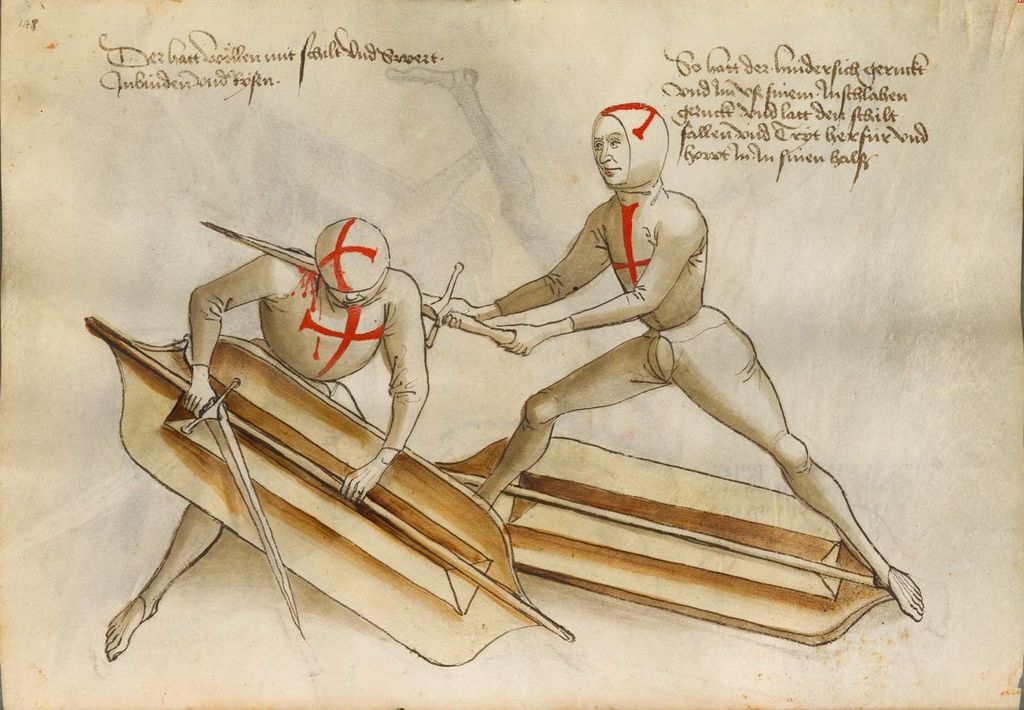 148
Der hatt wöllen mit schilt vnd Swert
Inbinden vnd lösen
So hatt der hindersich geruckt
vnd Im vß sinem Anschlahen
geruckt vnd latt den schilt
fallen vnd Tryt her für vnd
howt In In sinen halß